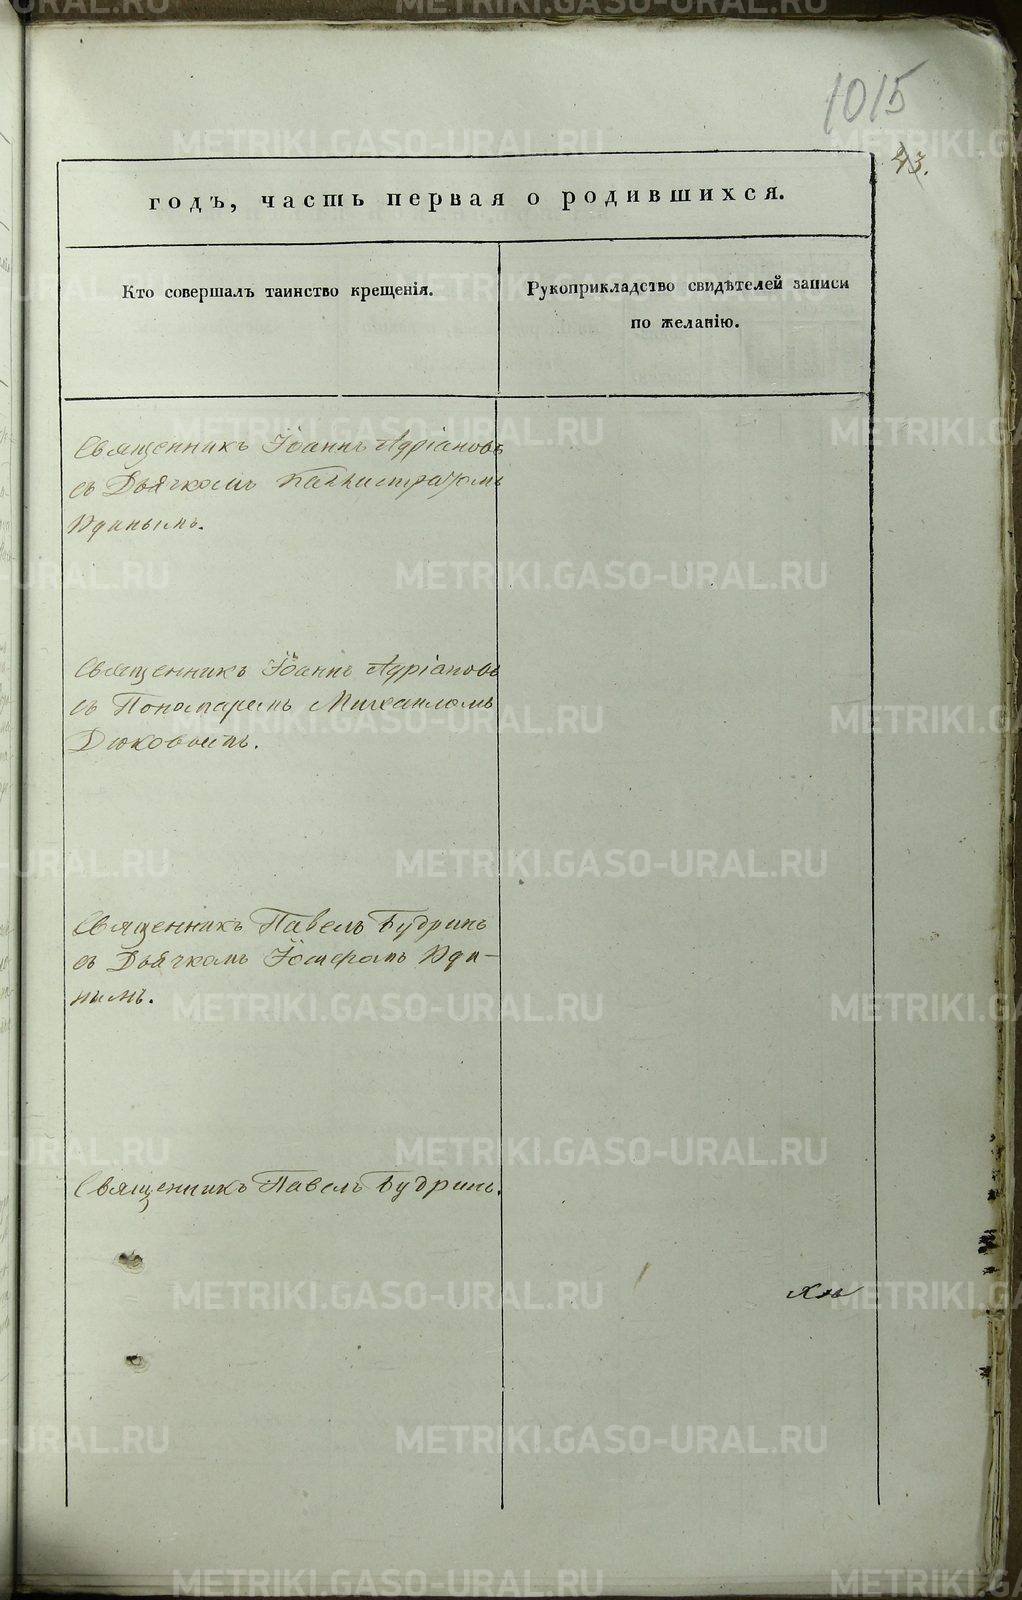 1015
43.
годъ, часть первая о родившихся.
Кто совершалъ таинство крещенія.
Рукоприкладство свидѣтелей записи
по желанію.
Священникъ Іоаннъ Адріановъ
съ Дьячкомъ Каллистратомъ
Удинымъ.
Священникъ Іоаннъ Адріановъ
съ Пономаремъ Михаиломъ
Дюковымъ.
Священникъ Павелъ Будринъ
съ Дьячкомъ Іосифомъ Уди-
нымъ.
Священникъ Павелъ Будринъ.
METRIKI.GASO-URAL.RU